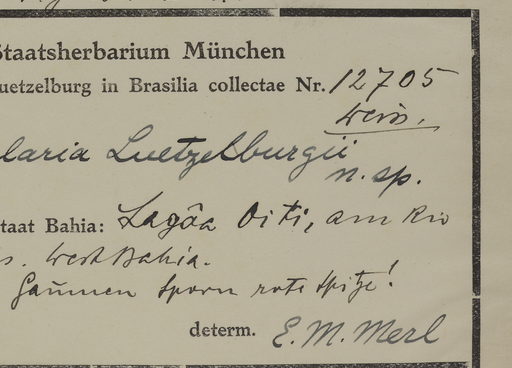 Staatsherbarium München
uetzelburg in Brasilia collectae Nr. 12705
weiss.
laria Luetzelburgii
n. sp.
Staat Bahia: Lagôa Oiti, am Rio
s. West Bahia.
Gaumen Sporn rote Spitze!
determ. E. M. Merl